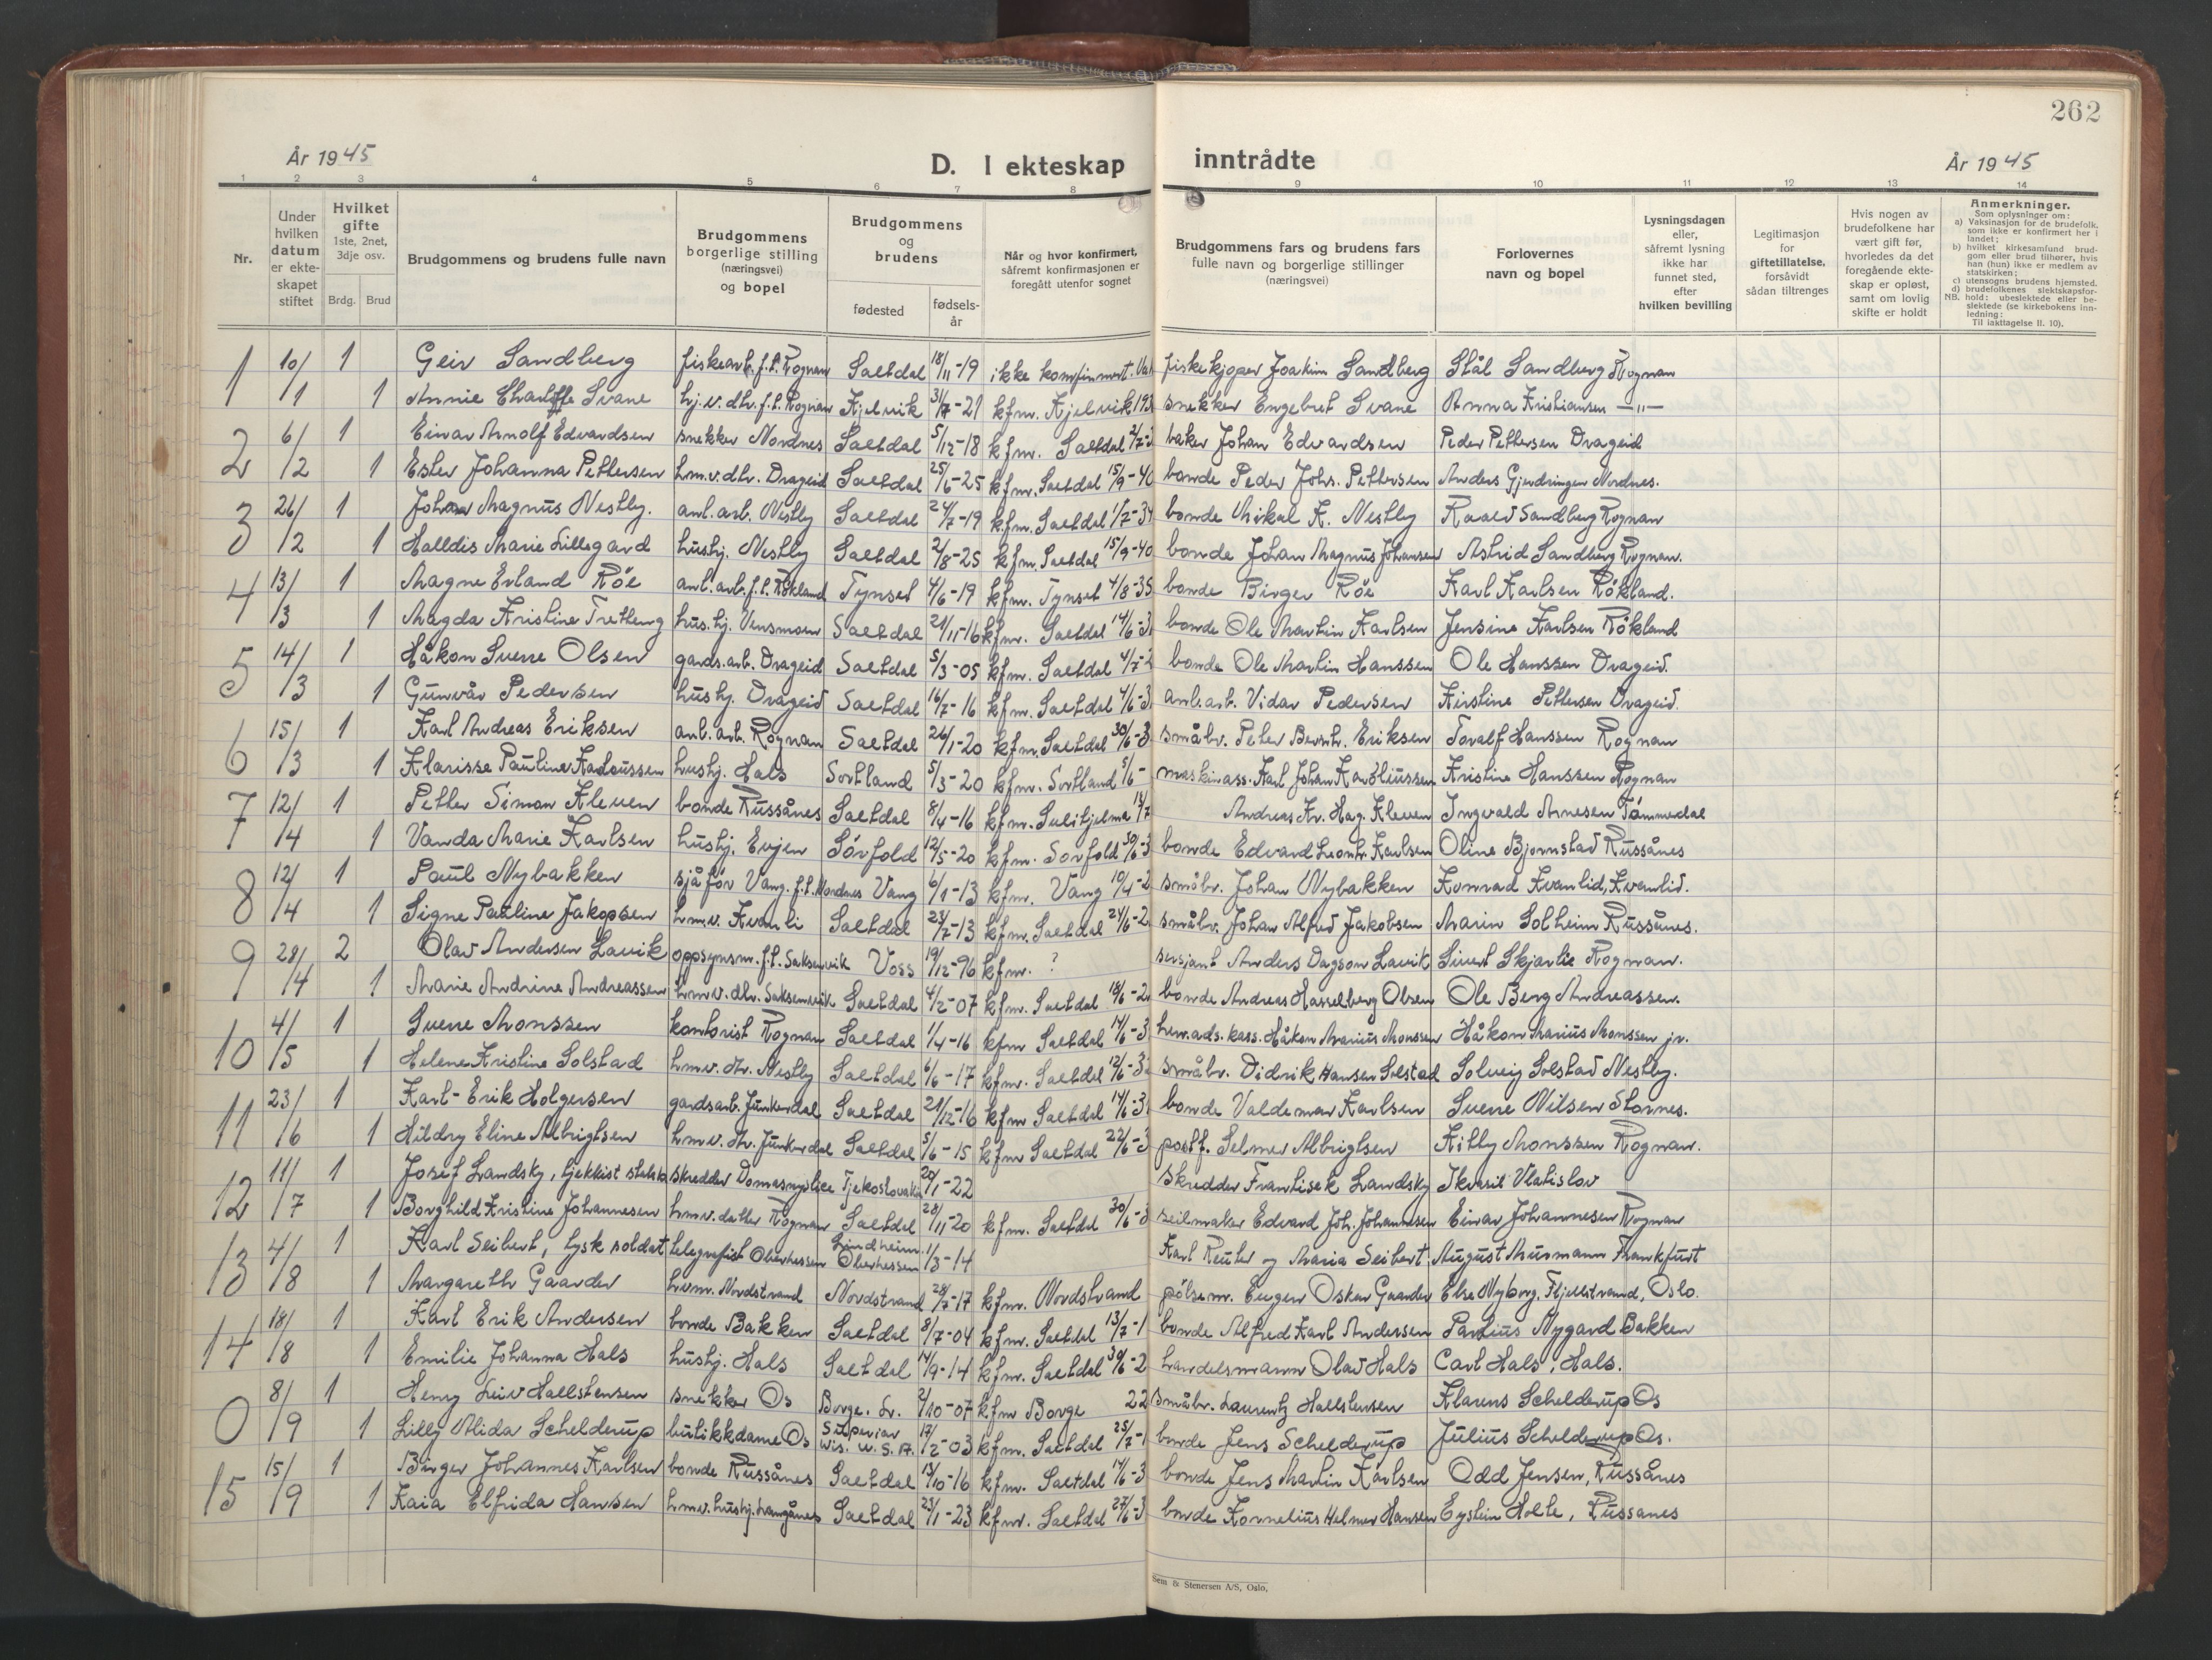 262
År 1945
D. I ekteskap inntrådte
År 1945
1 2 3 4 5 6 7 8 9 10 11 12 13 14
Nr.
Under hvilken datum er ekte-skapet stiftet
Hvilket gifte 1ste, 2net, 3dje osv.
Brdg. Brud
Brudgommens og brudens fulle navn
Brudgommens borgerlige stilling (næringsvei) og bopel
Brudgommens og brudens
fødested
fødsels-år
Når og hvor konfirmert, såfremt konfirmasjonen er foregått utenfor sognet
Brudgommens fars og brudens fars fulle navn og borgerlige stillinger (næringsvei)
Forlovernes navn og bopel
Lysningsdagen eller, såfremt lysning ikke har funnet sted, efter hvilken bevilling
Legitimasjon for giftetillatelse, forsåvidt sådan tiltrenges
Hvis nogen av brudefolkene har vært gift før, hvorledes da det foregående ekte-skap er opløst, samt om lovlig skifte er holdt
Anmerkninger.
Som oplysninger om:
a) Vaksinasjon for de brudefolk, som ikke er konfirmert her i landet;
b) hvilket kirkesamfund brud-gom eller brud tilhører, hvis han (hun) ikke er medlem av statskirken;
c) utensogns brudens hjemsted.
d) brudefolkenes slektskapsfor-hold: ubeslektede eller be-slektede (se kirkebokens inn-ledning:
NB.
Til iakttagelse II. 10).
1 10/1 1 Geir Sandberg fiskearb. f.t. Rognan Saltdal 18/11-19 ikke konfirmert. fiskekjøper Joakim Sandberg Stål Sandberg Rognan
1 Annie Charlotte Svane hj.v. dtr. f.t. Rognan Kjelvik 31/7-21 kfm. Kjelvik 193 snekker Engebret Svane Anna Kristiansen —"—
2 6/2 1 Einar Arnolf Edvardsen snekker Nordnes Saltdal 5/12-18 kfm. Saltdal 2/7-3 baker Johan Edvardsen Peder Pettersen Drageid
1 Ester Johanna Pettersen hm.v. dtr. Drageid Saltdal 25/6-25 kfm. Saltdal 15/9-40 bonde Peder Johs. Pettersen Anders Gjendringen Nordnes.
3 26/2 1 Johan Magnus Nestby. anl. arb. Nestby Saltdal 24/7-19 kfm. Saltdal 1/7-34 bonde Mikal K. Nestby Roald Sandberg Rognan
1 Halldis Marie Lillegard hushj. Nestby Saltdal 2/8-25 kfm. Saltdal 15/9-40 bonde Johan Magnus Johansen Astrid Sandberg Rognan.
4 13/3 1 Magne Erland Röe anl. arb. f.t. Rökland Tynset 4/6-19 kfm. Tynset 4/8-35 bonde Birger Röe Karl Karlsen Rökland.
1 Magda Kristine Tretteng hus.hj. Vensmoen Saltdal 21/11-16 kfm. Saltdal 14/6-3 bonde Ole Martin Karlsen Jensine Karlsen Rökland
5 14/3 1 Håkon Sverre Olsen gards.arb. Drageid Saltdal 5/3-05 kfm. Saltdal 4/7-2 bonde Ole Martin Hanssen Ole Hanssen Drageid.
1 Gunvår Pedersen hushj. Drageid Saltdal 16/7-16 kfm. Saltdal 4/6-3 anl.arb. Vidar Pedersen Kirstine Pettersen Drageid.
6 15/3 1 Karl Andreas Eriksen anl. arb. Rognan Saltdal 26/1-20 kfm. Saltdal 30/6-3 småbr. Peter Bernh. Eriksen Toralf Hanssen Rognan
1 Klarisse Pauline hushj. Hals Sortland 5/3-20 kfm. Sortland 5/6- maskinass. Karl Johan Kristine Hanssen Rognan
7 12/4 1 Petter Simon Kleven bonde Russånes Saltdal 8/4-16 kfm. Sulitjelma Andreas Kr. Hag. Kleven Ingvald Arnesen
1 Vanda Marie Karlsen hushj. Evjen Sörfold 12/5-20 kfm. Sörfold 30/6-3 bonde Edvard Leonh. Karlsen Oline Bjørnstad Russånes
8 12/4 1 Paul Nybakken sjåför Vang. f.t. Nordnes Vang 6/1-13 kfm. Vang 10/4-2 småbr. Johan Nybakken Konrad Kvanlid, Kvanlid.
1 Signe Pauline Jakopsen hm.v. Kvanli Saltdal 23/7-13 kfm. Saltdal 24/6-2 småbr. Johan Alfred Jakobsen Marin Solheim Russånes.
9 28/4 2 Olav Andersen Lavik oppsynsm. f.t. Saksenvik Voss 19/12-96 kfm. ? sersjant Anders Dagson Lavik Sivert Skjarlie Rognan.
1 Marie Andrine Andreassen hm.v. dtr. Saksenvik Saltdal 4/2-07 kfm. Saltdal 18/6-2 bonde Andreas Hasselberg Olsen Ole Berg Andreassen.
10 4/5 1 Sverre Monssen kontorist Rognan Saltdal 1/4-16 kfm Saltdal 14/6-3 herr.ads. kass. Håkon Marius Monssen Håkon Marius Monssen jr.
1 Helene Kristine Solstad hm.v. dtr. Nestby Saltdal 6/6-17 kfm. Saltdal 12/6-3 småbr. Didrik Hansen Solstad Solveig Solstad Nestby.
11 23/6 1 Karl-Erik Holgersen gardsarb. Junkerdal Saltdal 21/12-16 kfm Saltdal 14/6-3 bonde Valdemar Karlsen Sverre Nilsen Stornes.
1 Hildry Eline Albrigtsen hm.v. dtr. Junkerdal Saltdal 5/6-15 kfm Saltdal 22/6-3 postf. Selmer Albrigtsen Kitty Monssen Rognan.
12 11/7 1 Josef Landsky, tjekkist skredder Tjekoslovakia 20/1-22 skredder Frantisek Landsky Vlatislav
1 Borghild Kristine Johannesen hm.v. datter Rognan Saltdal 28/11-20 kfm. Saltdal 30/6-3 seilmaker Edvard Joh. Johannesen Einar Johannesen Rognan
13 4/8 1 Karl Seibert, tysk soldat telegrafist Oberhessen Lindheim Oberhessen 1/3-14 Karl Reuter og Maria Seibert August Musmann Frankfurt
1 Margareth Gaarder hvm. Nordstrand Nordstrand 28/7-17 kfm. Nordstrand pölsem. Eugen Oskar Gaarder Else Nyborg, Fljellstrand, Oslo.
14 18/8 1 Karl Erik Andersen bonde Bakken Saltdal 8/7-04 kfm. Saltdal 13/7-1 bonde Alfred Karl Andersen Paulius Nygard Bakken
1 Emilie Johanna Hals hushj. Hals Saltdal 14/9-14 kfm. Saltdal 30/6-2 handelsmann Olav Hals Carl Hals, Hals.
0 8/9 1 Henry Leiv Hallstensen snekker Os Borge. Lr. 2/10-07 kfm Borge 22 småbr. Laurentz Hallstensen Klarens Schelderup Os
1 Lilly Alida Schelderup butikkdame Os Superior Wis. U.S.A. 17/2-03 kfm. Saltdal 25/7-1 bonde Jens Schelderup Julius Schelderup Os.
15 15/9 1 Birger Johannes Karlsen bonde Russånes Saltdal 13/10-16 kfm. Saltdal 14/6-3 bonde Jens Martin Karlsen Odd Jensen, Russånes
1 Kaia Elfrida Hansen hm.v. hushj. Langånes Saltdal 23/1-23 kfm. Saltdal 27/6-3 bonde Kornelius Helmer Hansen Eystein Holte, Russanes
Sem & Stenersen A/S, Oslo.